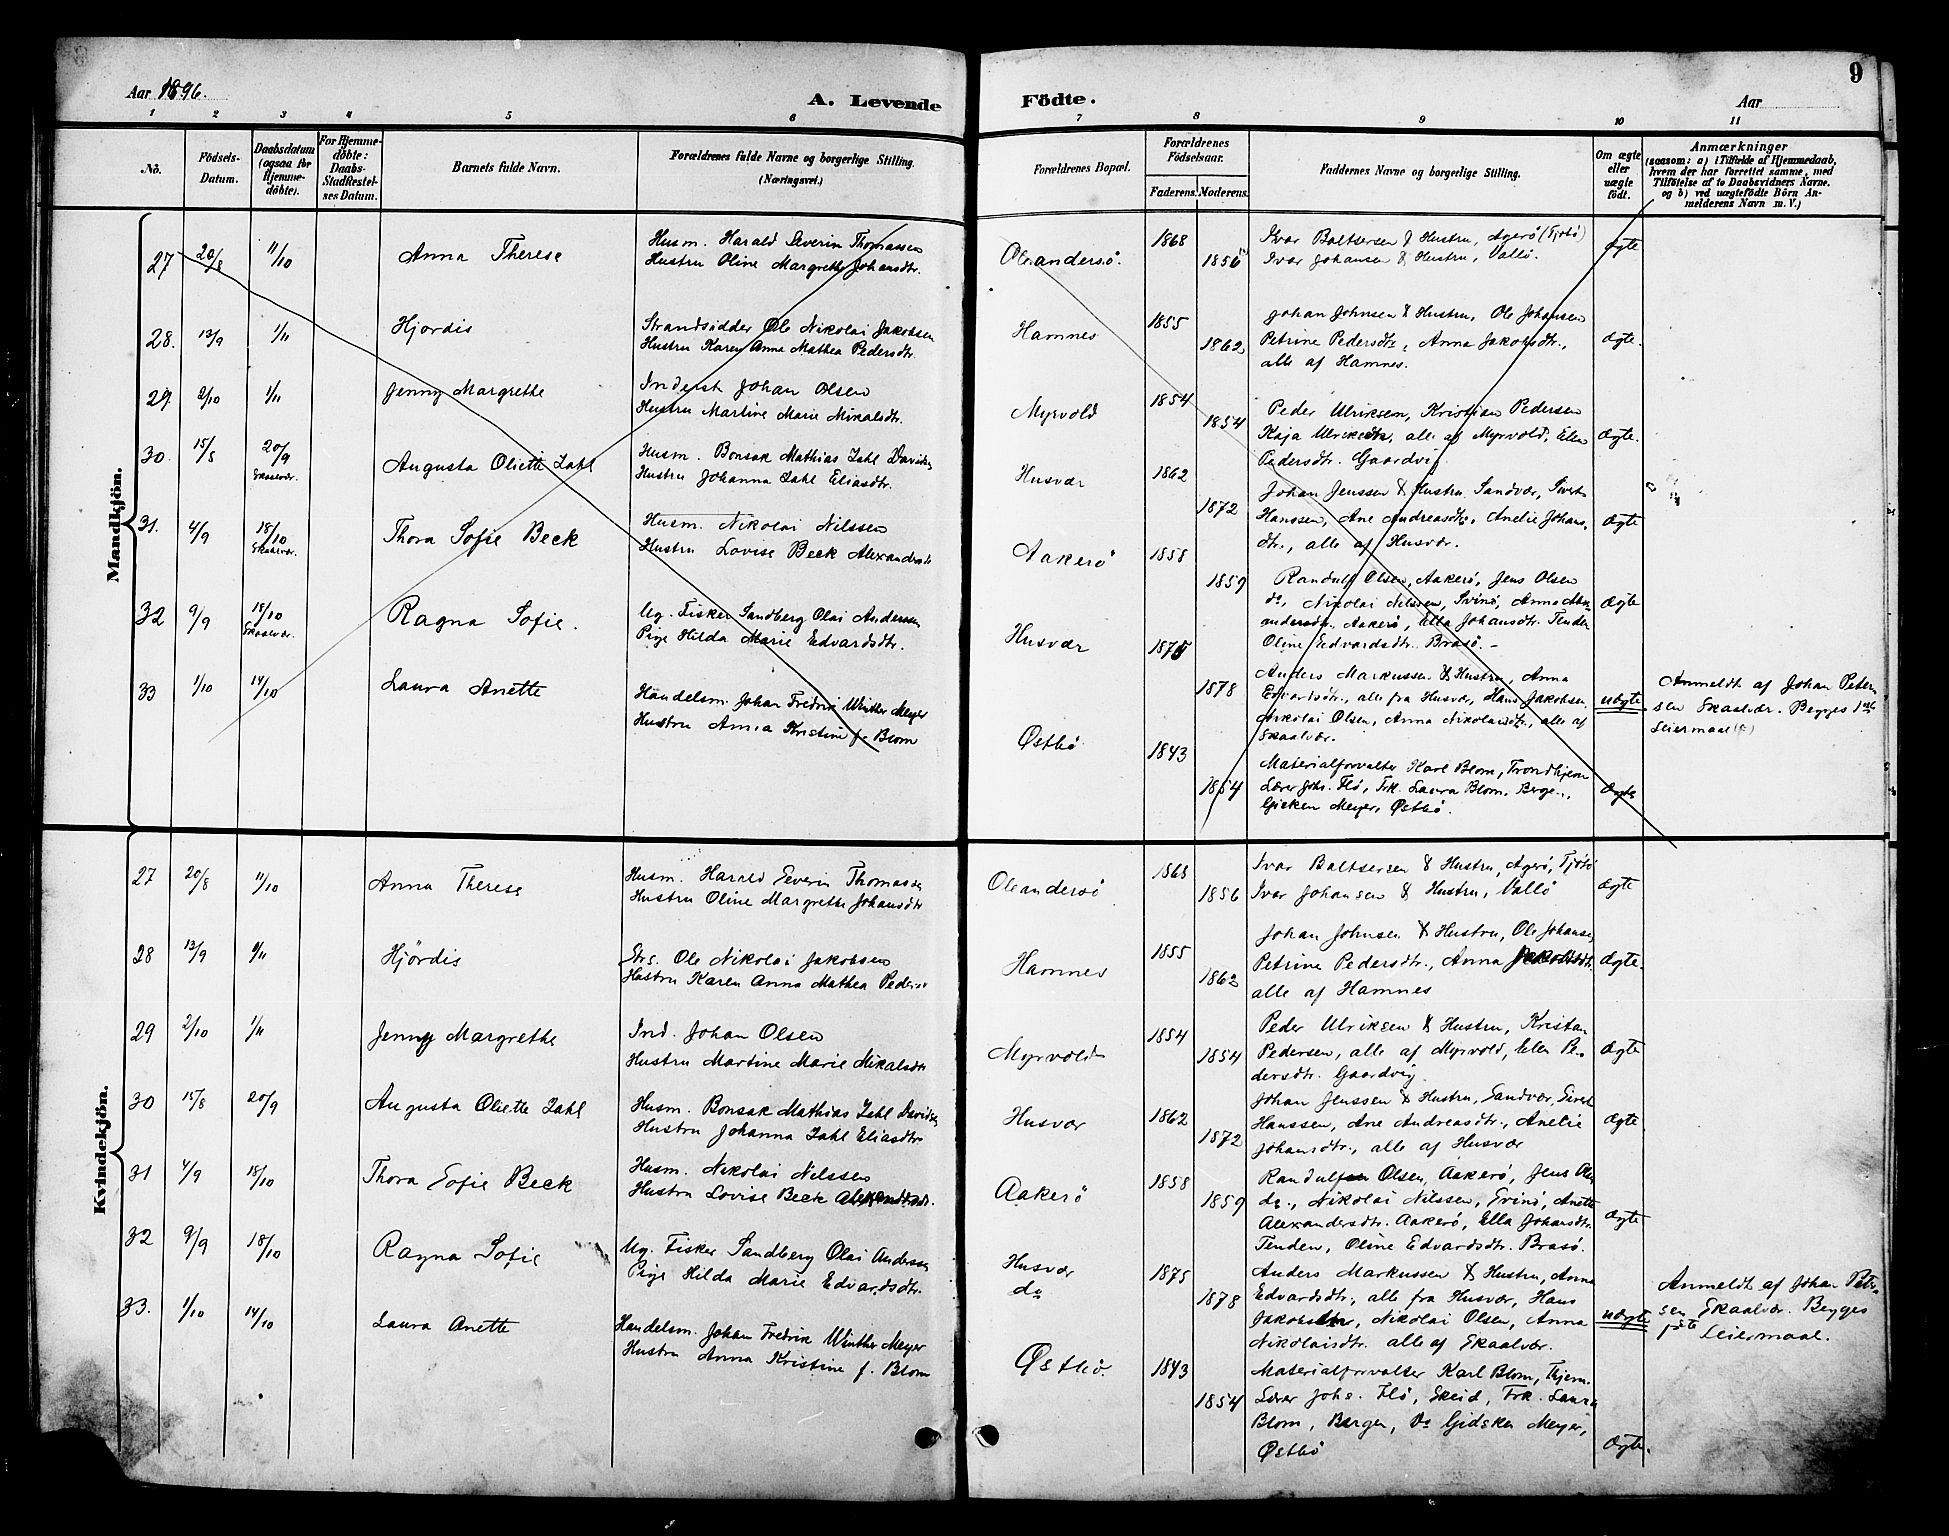 Aar 1896.
A. Levende
Födte.
Aar
9
1 2 3 4 5 6 7 8 9 10 11
No.
Födsels-
Datum.
Daabsdatum
(ogsaa for
Hjemme-
döbte).
For Hjemme-
döbte:
Daabs-
Stadfæstel-
ses Datum.
Barnets fulde Navn.
Forældrenes fulde Navne og borgerlige Stilling.
(Næringsvei.)
Forældrenes Bopæl.
Forældrenes
Födselsaar.
Faderens. Moderens.
Faddernes Navne og borgerlige Stilling.
Om ægte
eller
uægte
födt.
Anmærkninger
(saasom: a) i Tilfælde af Hjemmedaab,
hvem der har forrettet samme, med
Tilföielse af to Daabsvidners Navne.
og b) ved uægtefödte Börn An-
melderens Navn m. V.)
Mandkjön.
27 20/8 11/10 Anna Therese
Husm. Harald Severin Thomassen
Hustru Oline Margrethe Johansdtr.
Oleandersö. 1868 1856
Ivar Baltsersen & Hustru, Agerö (Tjötö)
Ivar Johansen & Hustru, Vallö.
Ægte
28. 13/9 1/11 Hjordis
Strandsidder Ole Nikolai Jakobsen
Hustru Karen Anna Mathea Pedersdtr.
Hamnes 1855 1862
Johan Johnsen & Hustru, Ole Johansen
Petrine Pedersdtr, Anna Jakobsdtr.,
alle af Hamnes.
Ægte.
29. 2/10 1/11 Jenny Margrethe
Inderst Johan Olsen
Hustru Martine Marie Mikalsdtr.
Myrvold 1854 1854
Peder Ulriksen, Kristian Pedersen
Kaja Ulriksdtr, alle af Myrvold, Elen
Pedersdtr. Gaardvig
Ægte.
30. 15/8 20/9 Skaalvær. Augusta Oliette Zahl
Husm. Bonsak Mathias Zahl Davidsen
Hustru Johanna Zahl Eliasdtr.
Husvær 1862 1872
Johan Jenssen & Hustru, Sandvær, Sivert
Hanssen, Ane Andreasdtr, Anelie Johans-
dtr., alle af Husvær.
Ægte
31. 4/9 18/10 Skaalvær. Thora Sofie Beck
Husm. Nikolai Nilssen
Hustru Lovise Beck Alexandersdtr
Aakerö 1858 1859
Randulf Olsen, Aakerö, Jens Olsen
do, Nikolai Nilssen, Svinö, Anna Alex-
andersdtr. Aakerö, Ella Johansdtr. Tenden
Oline Edvardsdtr. Brasö.
Ægte
32 9/9 18/10 Skaalvær. Ragna Sofie.
Ug. Fisker Sandberg Olai Andersen
Pige Hilda Marie Edvardsdtr.
Husvær 1875 1878
Anders Markussen & Hustru, Anna
Edvardsdtr., alle fra Husvær, Hans Jakobsen,
Nikolai Olsen, Anna Nikolaisdtr., alle af
Skaalvær.
uægte
Anmeldt af Johan Peter-
sen Skaalvær. Begges 1ste
Leiermaal
33 1/10 14/10 Laura Anette
Handelsm. Johan Fredrik Winther Meyer
Hustru Anna Kristine f. Blom
Østbö 1843 1854
Materialforvalter Karl Blom, Trondhjem
Lærer Johs. Flö, Frk. Laura Blom, Bergen,
Gidsken Meyer, Østbö.
Ægte
Kvindekjön.
27 20/8 11/10 Anna Therese
Husm. Harald Severin Thomassen
Hustru Oline Margrethe Johansdtr
Oleandersö 1868 1856
Ivar Baltsersen & Hustru, Agerö, Tjötö
Ivar Johansen & Hustru, Vallö
Ægte
28 13/9 1/11 Hjördis
Strs. Ole Nikolai Jakobsen
Hustru Karen Anna Mathea Peders
Hamnes 1855 1862
Johan Johnsen & Hustru, Ole Johansen
Petrine Pedersdtr., Anna Jakobsdtr.
alle af Hamnes
Ægte.
29 2/10 1/11 Jenny Margrethe
Ind. Johan Olsen
Hustru Martine Marie Mikalsdtr
Myrvold 1854 1854
Peder Ulriksen & Hustru, Kristan
Pedersen, alle af Myrvold, Elen Pe-
dersdtr. Gaardvig
Ægte
30 15/8 20/9 Augusta Oliette Zahl
Husm. Bonsak Mathias Zahl Davidsen
Hustru Johanna Zahl Eliasdtr
Husvær 1862 1872
Johan Jenssen & Hustru, Sandvær, Sivert
Hanssen, Ane Andreasdtr., Anelie
Johansdtr., alle af Husvær
Ægte
31 4/9 18/10 Thora Sofie Beck
Husm. Nikolai Nilssen
Hustru Lovise Beck Alexandersdtr.
Aakerö 1858 1859
Randulf Olsen, Aakerö, Jens Olsen
do., Nikolai Nilssen, Svinö, Anette
Alexandersdtr. Aakerö, Ella Johansdtr.
Tenden, Oline Edvardsdtr. Brasö.
Ægte
32 9/9 18/10 Ragna Sofie
Ug. Fisker Sandberg Olai Anderssen
Pige Hilda Marie Edvardsdtr.
Husvær
do 1875 1878
Anders Markussen & Hustru, Anna
Edvardsdtr., alle fra Husvær, Hans
Jakobsen, Nikolai Olsen, Anna
Nikolaisdtr. alle af Skaalvær.
uægte
Anmeldt af Johan Peter-
sen Skaalvær. Begges
1ste Leiermaal.
33. 1/10 14/10 Laura Anette
Handelsm. Johan Fredrik Winther Meyer
Hustru Anna Kristine f. Blom
Østbö. 1843 1854
Materialforvalter Karl Blom, Thjem.
Lærer Johs. Flö, Skeid, Frk. Laura
Blom, Bergen, Do Gidsken Meyer,
Østbö
Ægte.